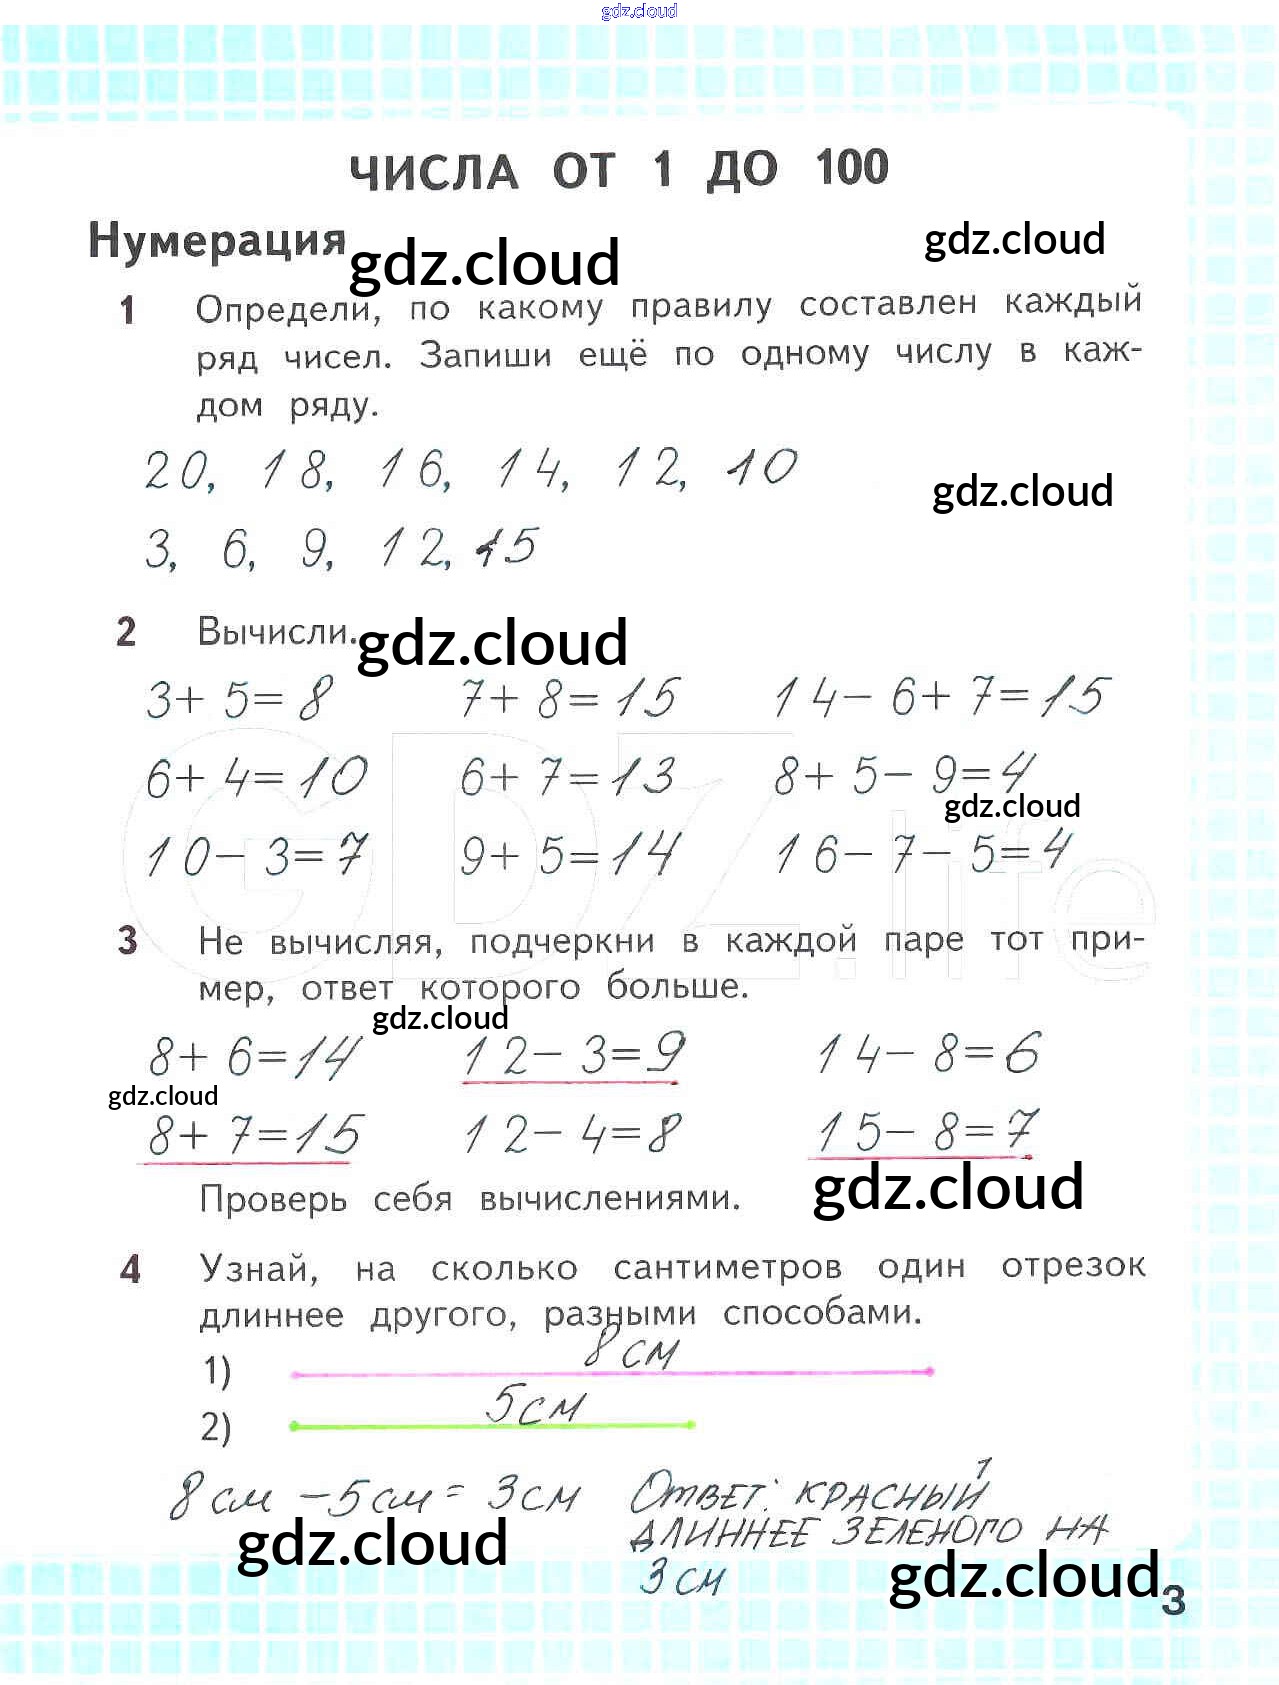 gdz.cloud
ЧИСЛА ОТ 1 ДО 100
Нумерация
gdz.cloud
gdz.cloud
1 Определи, по какому правилу составлен каждый
ряд чисел. Запиши ещё по одному числу в каж-
дом ряду.
20, 18, 16, 14, 12, 10
gdz.cloud
3, 6, 9, 12, 15
2 Вычисли.
gdz.cloud
3+ 5= 8 7+ 8= 15 14- 6+ 7= 15
6+ 4= 10 6+ 7= 13 8+ 5- 9= 4
gdz.cloud
10- 3= 7 9+ 5= 14 16- 7- 5= 4
GDZ.life
3 Не вычисляя, подчеркни в каждой паре тот при-
мер, ответ которого больше.
gdz.cloud
8+ 6= 14 12- 3= 9 14- 8= 6
gdz.cloud
8+ 7= 15 12- 4= 8 15- 8= 7
gdz.cloud
Проверь себя вычислениями.
4 Узнай, на сколько сантиметров один отрезок
длиннее другого, разными способами.
1) 8 см
2) 5см
8 см - 5 см = 3 см Ответ: КРАСНЫЙ
ДЛИННЕЕ ЗЕЛЕНОГО НА
3 см
gdz.cloud
gdz.cloud
3